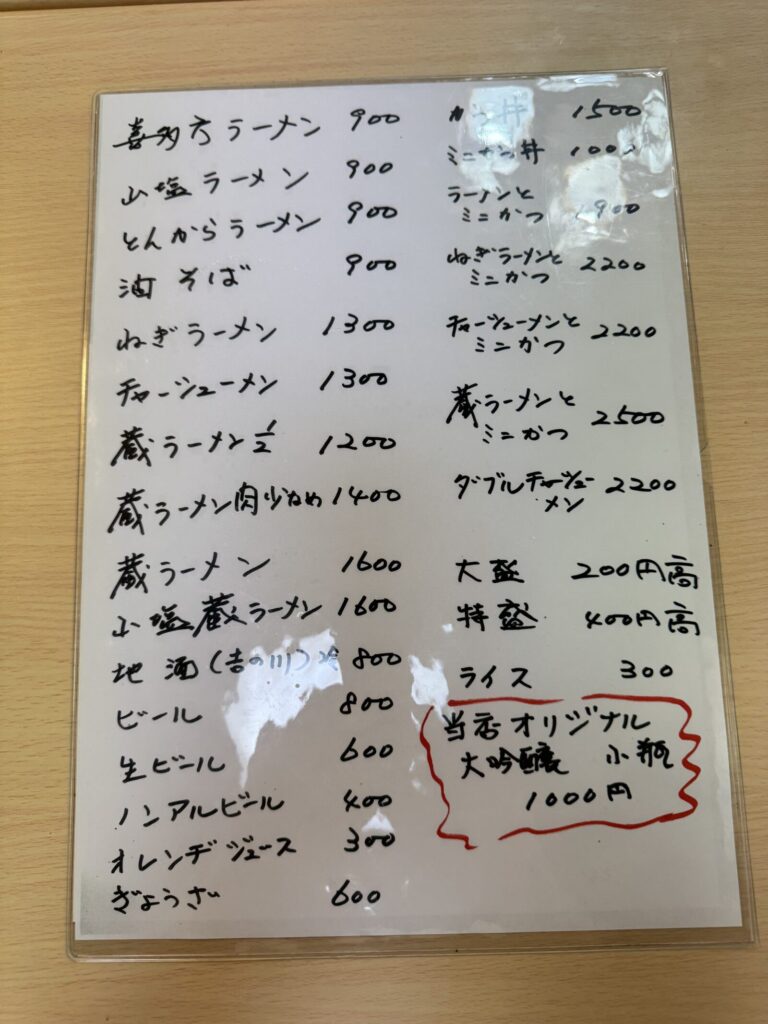 喜多方ラーメン 900
山塩ラーメン 900
とんからラーメン 900
油そば 900
ねぎラーメン 1300
チャーシューメン 1300
蔵ラーメン1/2 1200
蔵ラーメン肉少なめ 1400
蔵ラーメン 1600
山塩蔵ラーメン 1600
地酒(吉の川)冷 800
ビール 800
生ビール 600
ノンアルビール 400
オレンヂジュース 300
ぎょうざ 600
かつ丼 1500
ミニかつ丼 1000
ラーメンと
ミニかつ 1900
ねぎラーメンと
ミニかつ 2200
チャーシューメンと
ミニかつ 2200
蔵ラーメンと
ミニかつ 2500
ダブルチャーシュー
メン 2200
大盛 200円高
特盛 400円高
ライス 300
当店オリジナル
大吟醸 小瓶
1000円